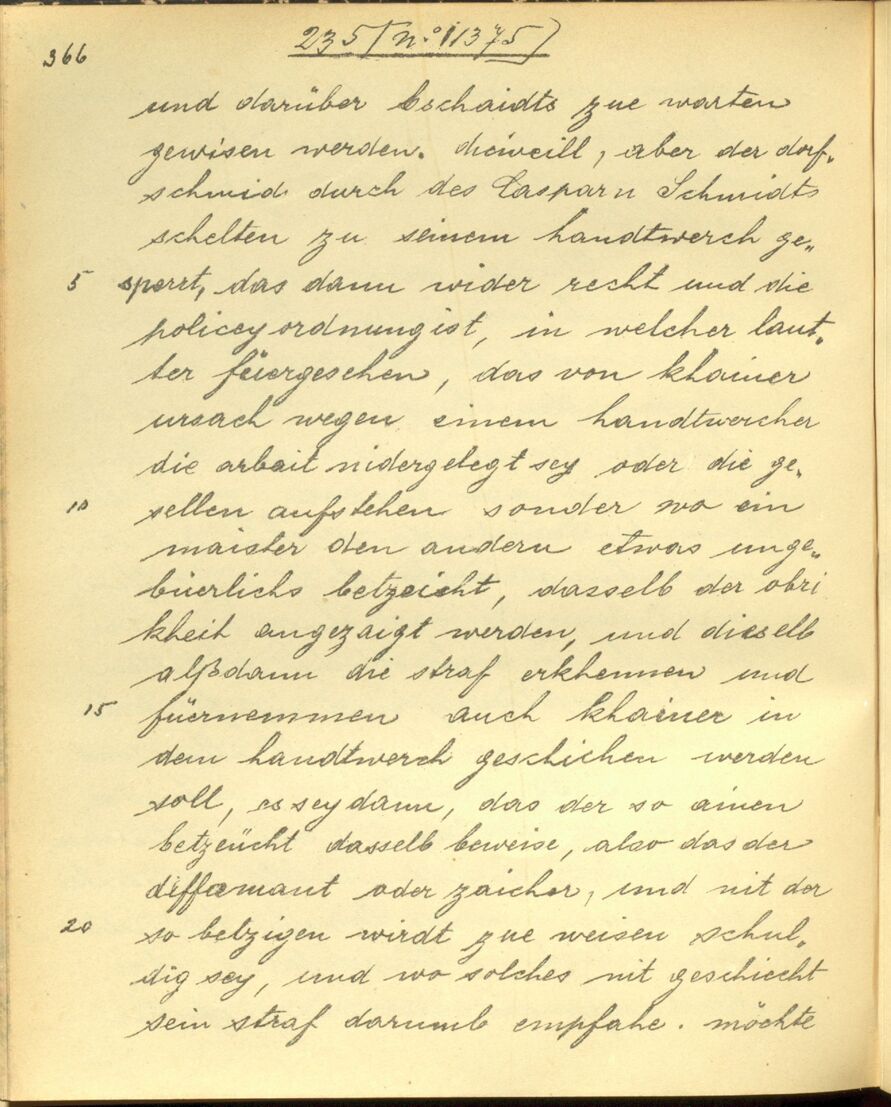 366
235 (n.º 11375)
und darüber bschaidts zue warten
gewisen werden. dieweill, aber der dorf-
schmid durch des Casparn Schmidts
schelten zu seinem handtwerch ge„
5 sperrt, das dann wider recht und die
policeyordnung ist, in welcher laut-
ter füergesehen, das von khainer
ursach wegen einem handtwercher
die arbait nidergelegt sey oder die ge-
10 sellen aufstehen sonder wo ein
maister den andern etwas unge„
büerlichs betzeicht, dasselb der obri
kheit angezaigt werden, und dieselb
alßdann die straf erkhennen und
15 füernemmen auch khainer in
dem handtwerch geschichen werden
soll, es sey dann, das der so ainen
betzeücht dasselb beweise, also das der
diffamant oder zaicher, und nit der
20 so betzigen wirdt zue weisen schul-
dig sey, und wo solches nit geschiecht
sein straf darumb empfahe. möchte